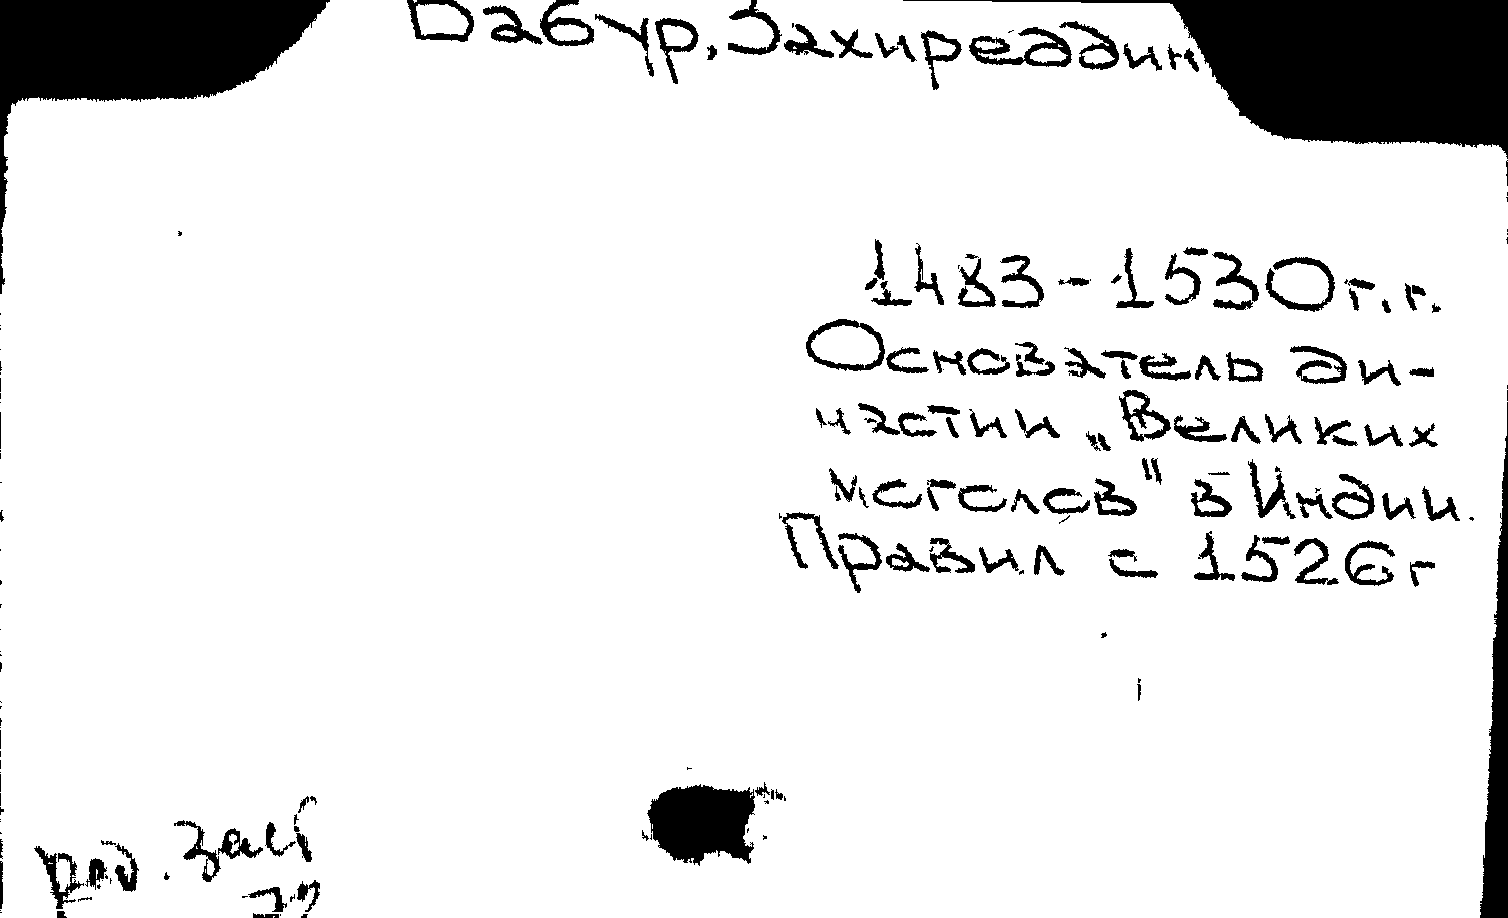 Бабур, Захиреддин
1483-1530 г.г.
Основатель ди-
настии „Великих
моголов" в Индии.
Правил с 1526 г